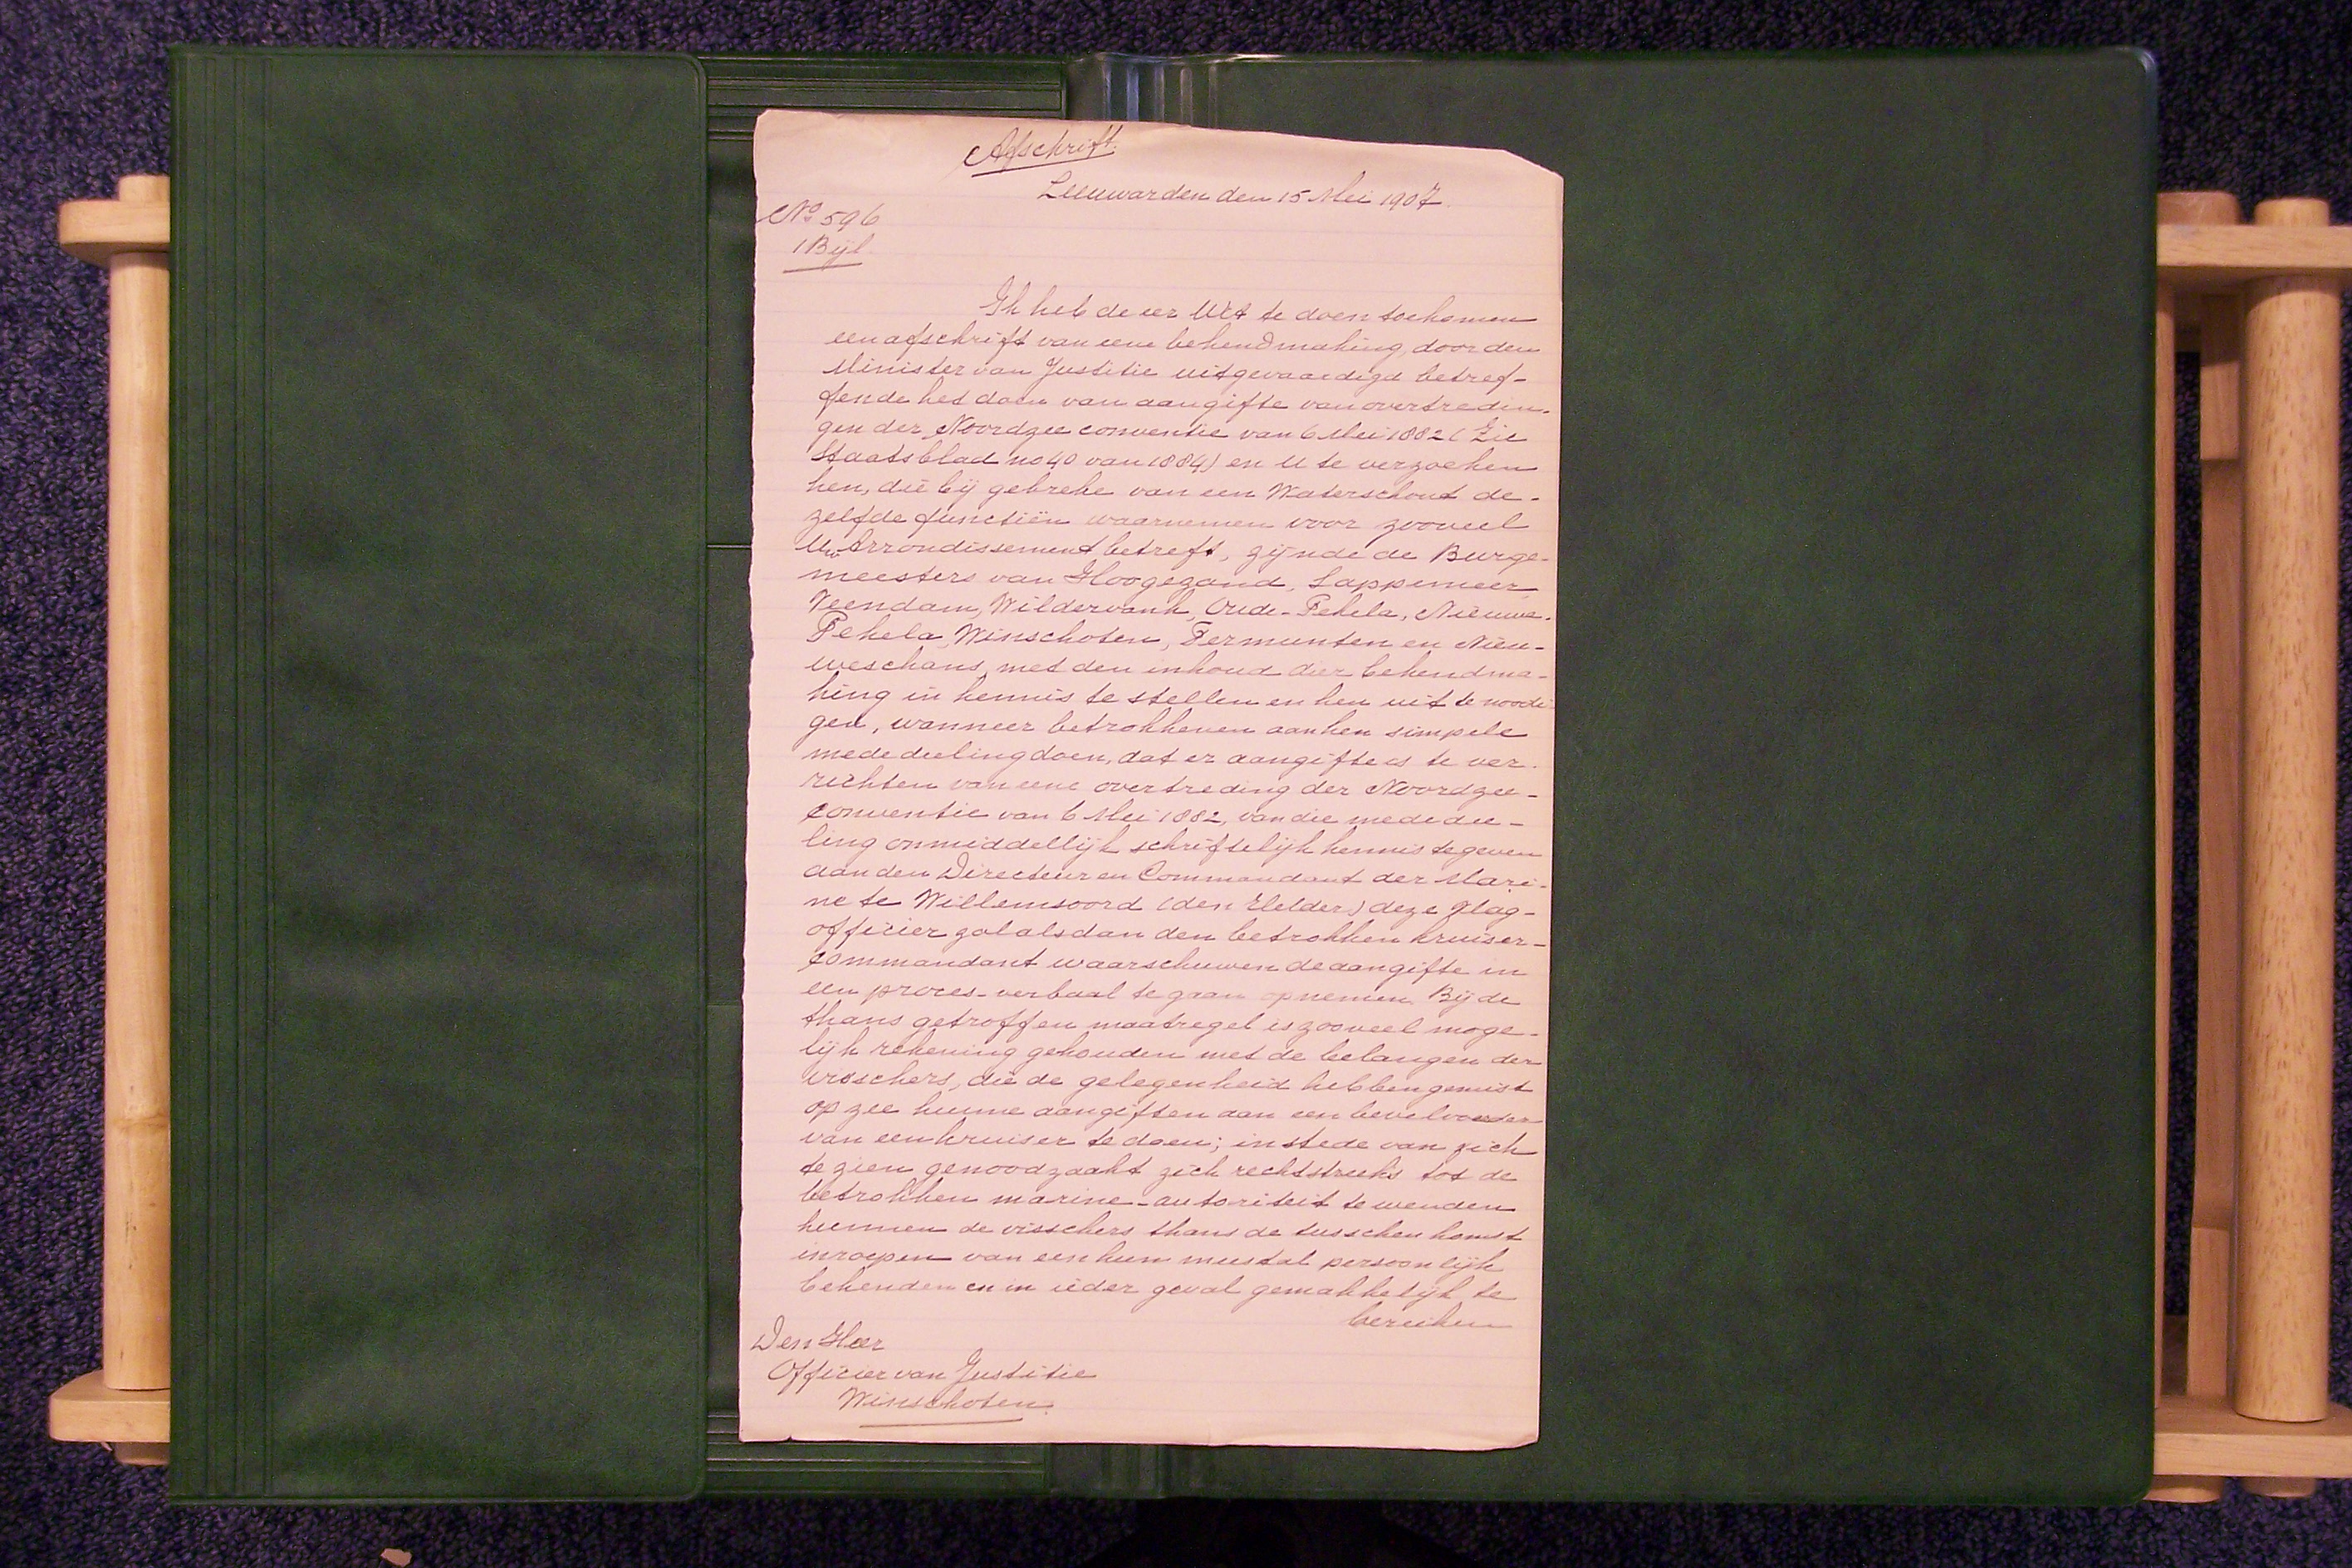 Afschrift.
Leeuwarden den 15 Mei 1907.
No 596
1 Bijl.
Ik heb de eer UEd te doen toekomen
een afschrift van eene bekendmaking, door den
Minister van Justitie uitgevaardigd betref-
fende het doen van aangifte van overtredin-
gen der Noordzee conventie van 6 Mei 1882 (Zie
Staatsblad no 40 van 1884) en U te verzoeken
hen, die bij gebreke van een Waterschout de-
zelfde functiën waarnemen voor zooveel
Uw Arrondissement betreft, zijnde de Burge-
meesters van Hoogezand, Sappemeer,
Veendam, Wildervank, Oude-Pekela, Nieuwe-
Pekela, Winschoten, Termunten en Nieu-
weschans, met den inhoud dier bekendma-
king in kennis te stellen en hen uit te noodi-
gen, wanneer betrokkenen aan hen simpele
mededeeling doen, dat er aangifte is te ver-
richten van eene overtreding der Noordzee-
conventie van 6 Mei 1882, van die mededee-
ling onmiddellijk schriftelijk kennis te geven
aan den Directeur en Commandant der Mari-
ne te Willemsoord (den Helder) deze Vlag-
officier zal alsdan den betrokken kruiser-
commandant waarschuwen de aangifte in
een proces-verbaal te gaan opnemen. Bij de
thans getroffen maatregel is zooveel moge-
lijk rekening gehouden met de belangen der
visschers, die de gelegenheid hebben gemist
op zee hunne aangiften aan een bevelvoerder
van een kruiser te doen; in stede van zich
te zien genoodzaakt zich rechtstreeks tot de
betrokken marine-autoriteit te wenden
kunnen de visschers thans de tusschenkomst
inroepen van een hun meestal persoonlijk
bekenden en in ieder geval gemakkelijk te
bereiken
Den Heer
Officier van Justitie
Winschoten.